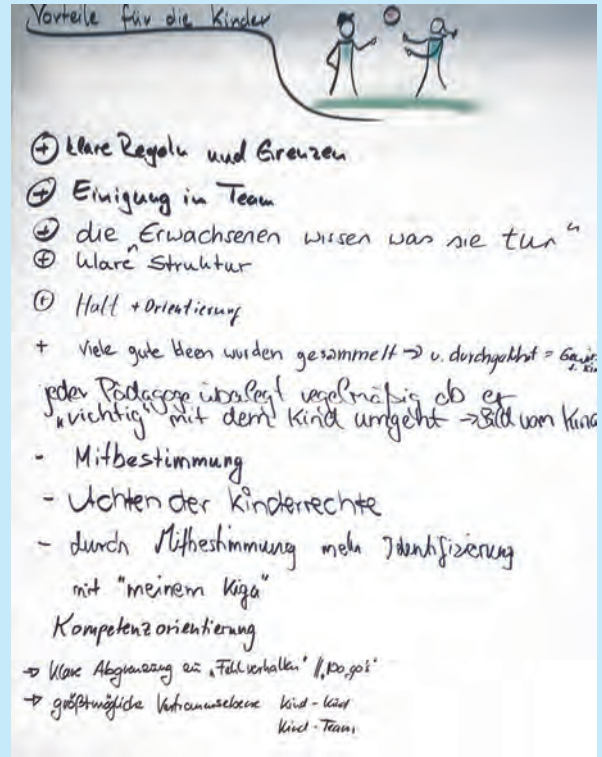 Vorteile für die Kinder
+ klare Regeln und Grenzen
+ Einigung im Team
+ die „Erwachsenen wissen was sie tun"
+ klare Struktur
+ Halt + Orientierung
+ Viele gute Ideen wurden gesammelt → u. durchgeführt =
jeder Pädagoge überlegt regelmäßig ob er
„richtig" mit dem Kind umgeht → Bild vom Kind
- Mitbestimmung
- Achten der Kinderrechte
- durch Mitbestimmung mehr Identifizierung
mit "meinem Kiga"
Kompetenzorientierung
→ klare Abgrenzung zu „Fehlverhalten" / „No go's"
→ größtmögliche Vertrauensebene Kind - Kind
Kind - Team